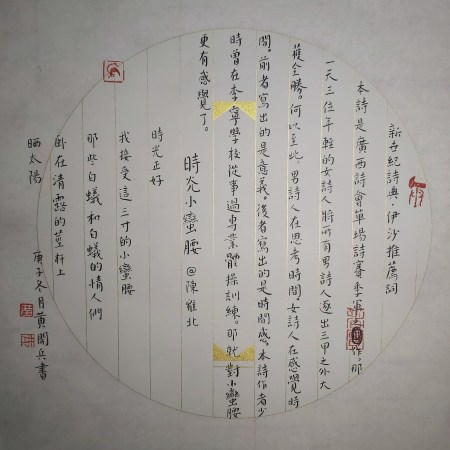 新世紀詩典·伊沙推薦詞
本詩是廣西詩會單場詩賽季軍之作，那
一天三位年輕的女詩人將所有男詩人逐出三甲之外大
獲全勝。何以至此，男詩人在思考時間，女詩人在感覺時
間。前者寫出的是意義。後者寫出的是時間感。本詩作者少
時曾在李寧學校從事過專業體操訓練。那就對小蠻腰
更有感覺了。
時光小蠻腰 @陳雅北
時光正好
我接受這三寸的小蠻腰
那些白蟻和白蟻的情人們
卧在清露的莖杆上
晒太陽
庚子冬月黄開兵書